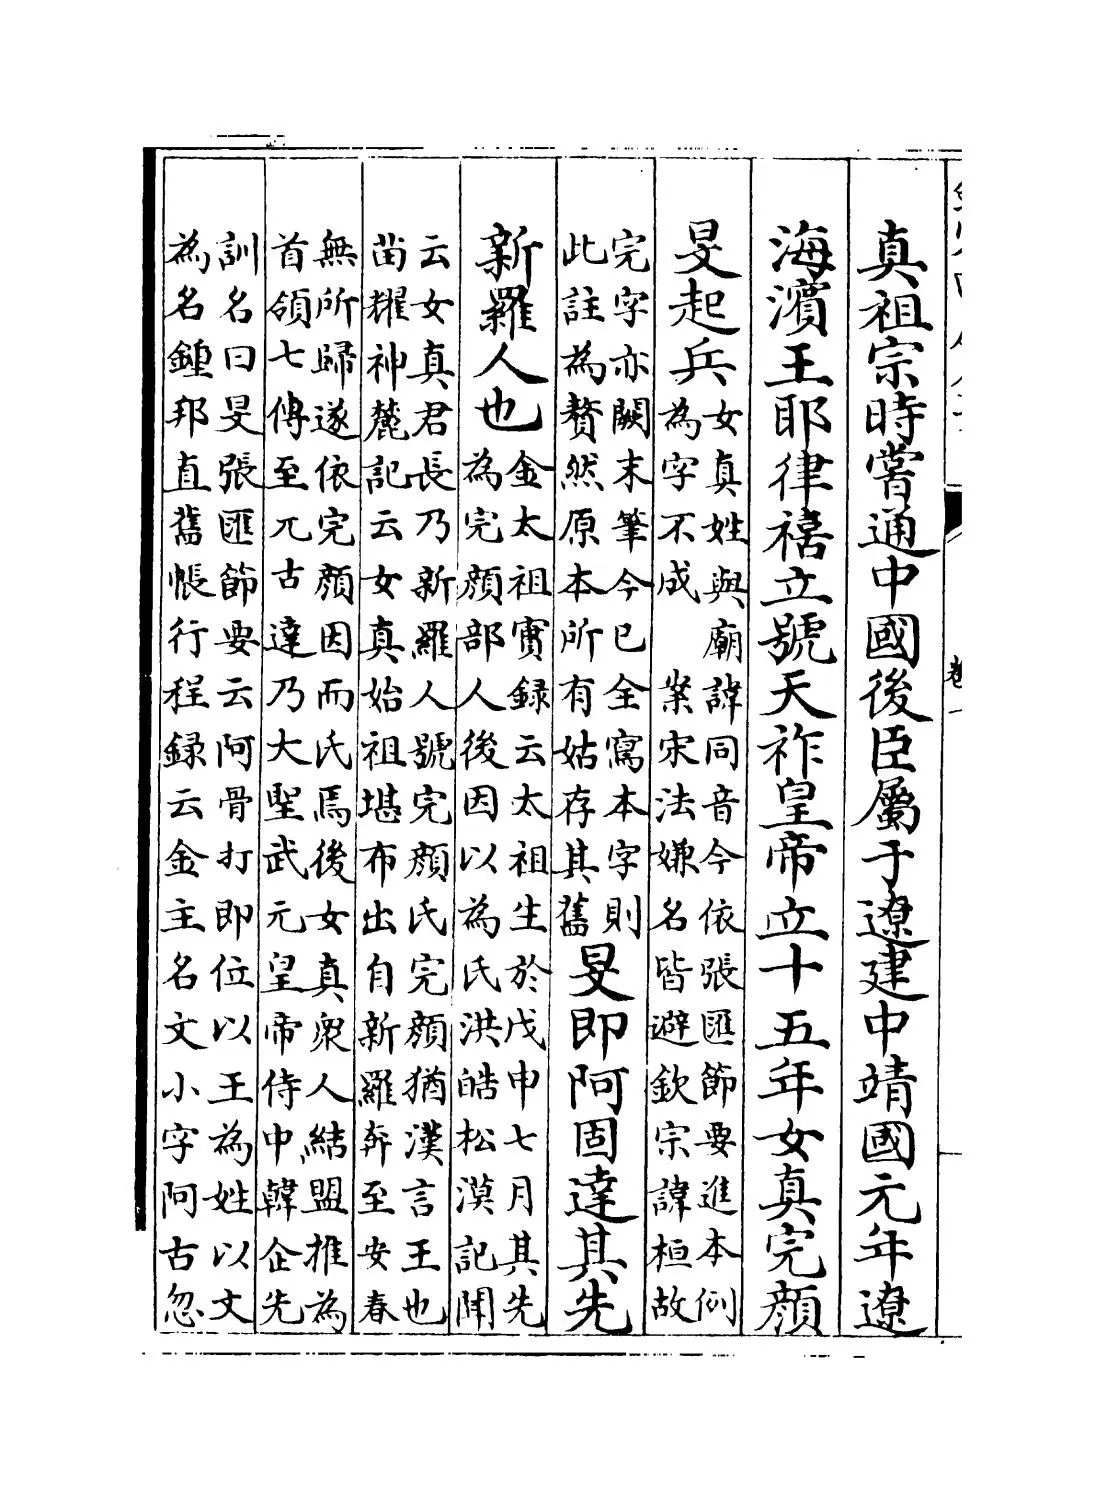 真祖宗時嘗通中國後臣屬于遼建中靖國元年遼
海濱王耶律禧立號天祚皇帝立十五年女真完顏
旻起兵
女真姓與廟諱同音今依張匯節要進本例
為字不成　案宋法嫌名皆避欽宗諱桓故
完字亦闕末筆今已全寫本字則
此註為贅然原本所有姑存其舊
旻即阿固達其先
新羅人也
金太祖實録云太祖生於戊申七月其先
為完顏部人後因以為氏洪皓松漠記聞
云女真君長乃新羅人號完顏氏完顏猶漢言王也
苗耀神麓記云女真始祖堪布出自新羅奔至安春
無所歸遂依完顏因而氏焉後女真衆人結盟推為
首領七傳至兀古達乃大聖武元皇帝侍中韓企先
訓名曰旻張匯節要云阿骨打即位以王為姓以文
為名鍾邦直舊帳行程録云金主名文小字阿古忽